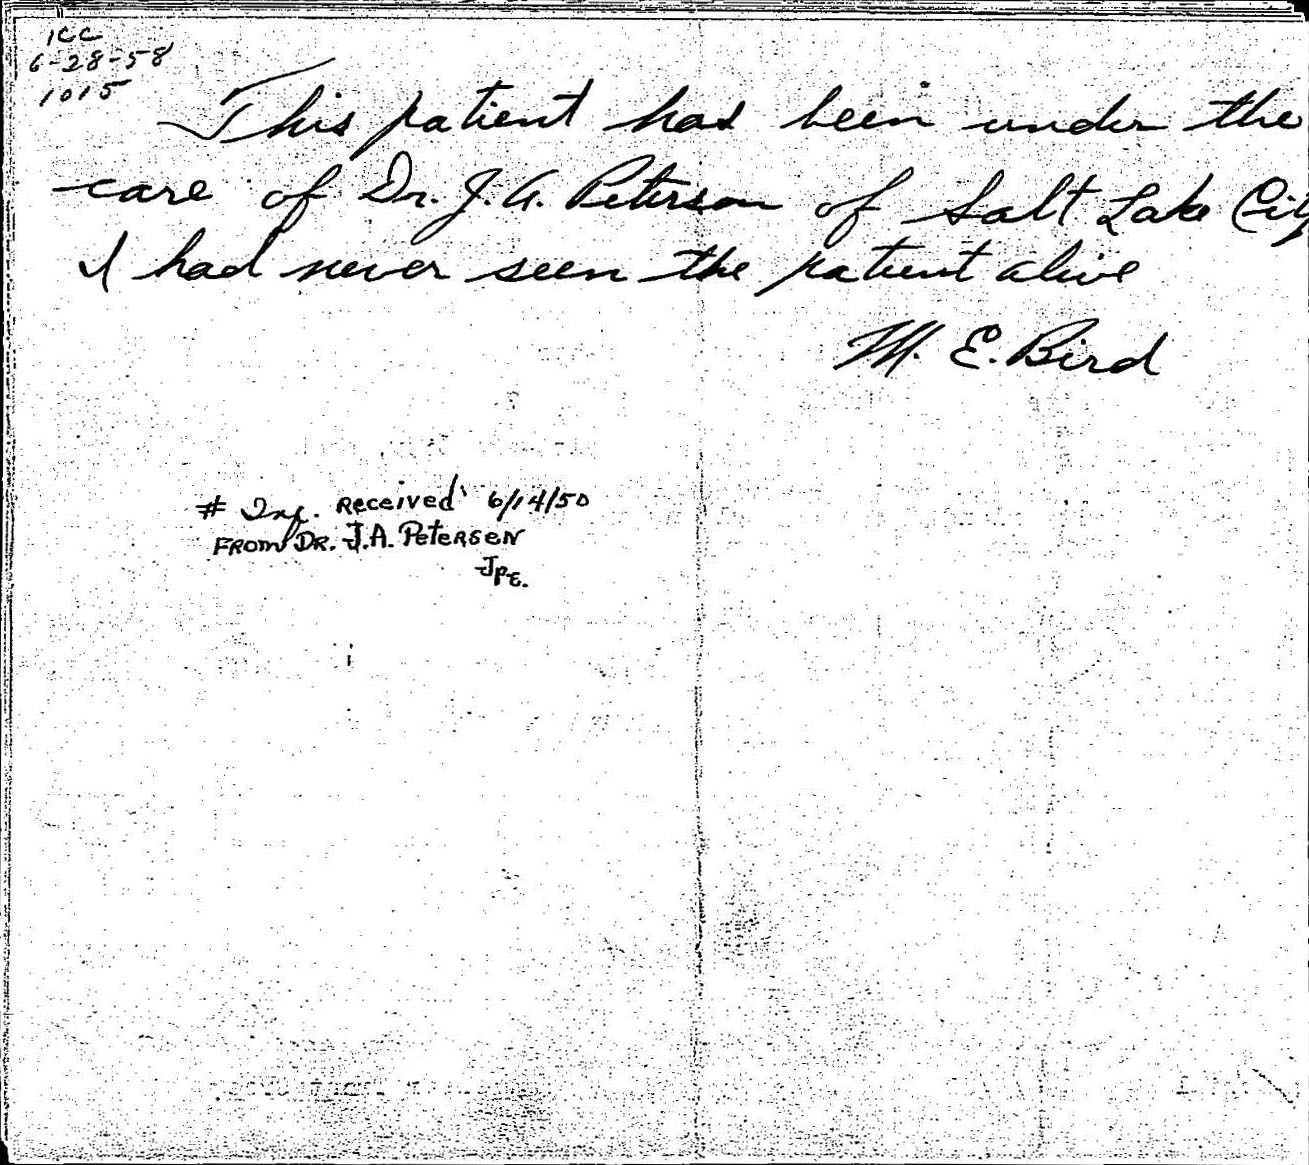 ICC
6-28-58
1015
This patient has been under the
care of Dr. J. A. Peterson of Salt Lake City
I had never seen the patient alive
M. E. Bird
# Inf. Received 6/14/50
FROM DR. J.A. PETERSEN
JPE.